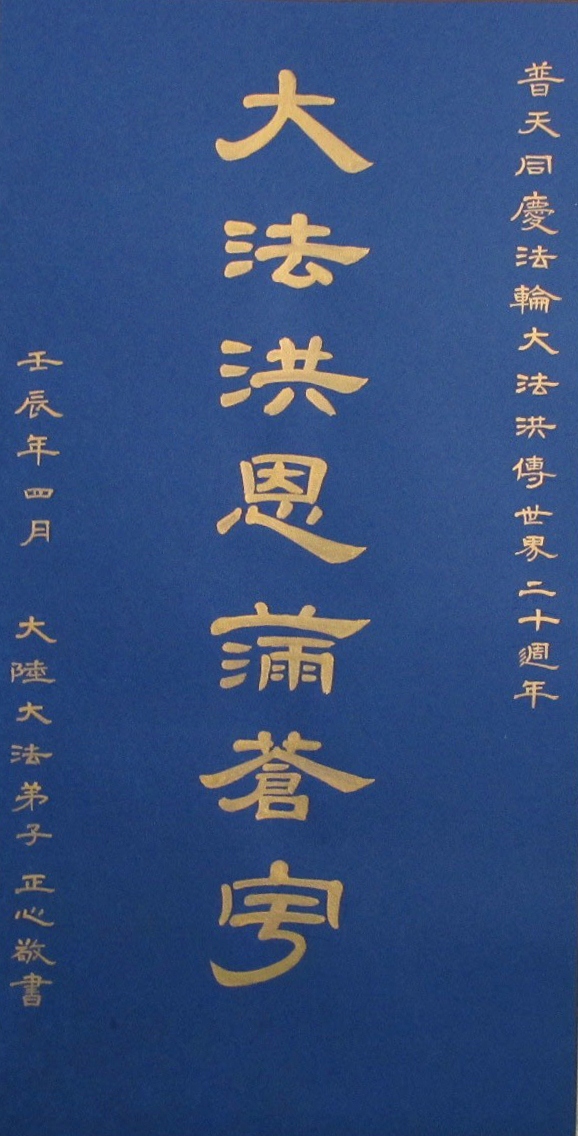 普天同慶法輪大法洪傳世界二十週年
大法洪恩滿蒼宇
壬辰年四月 大陸大法弟子 正心敬書